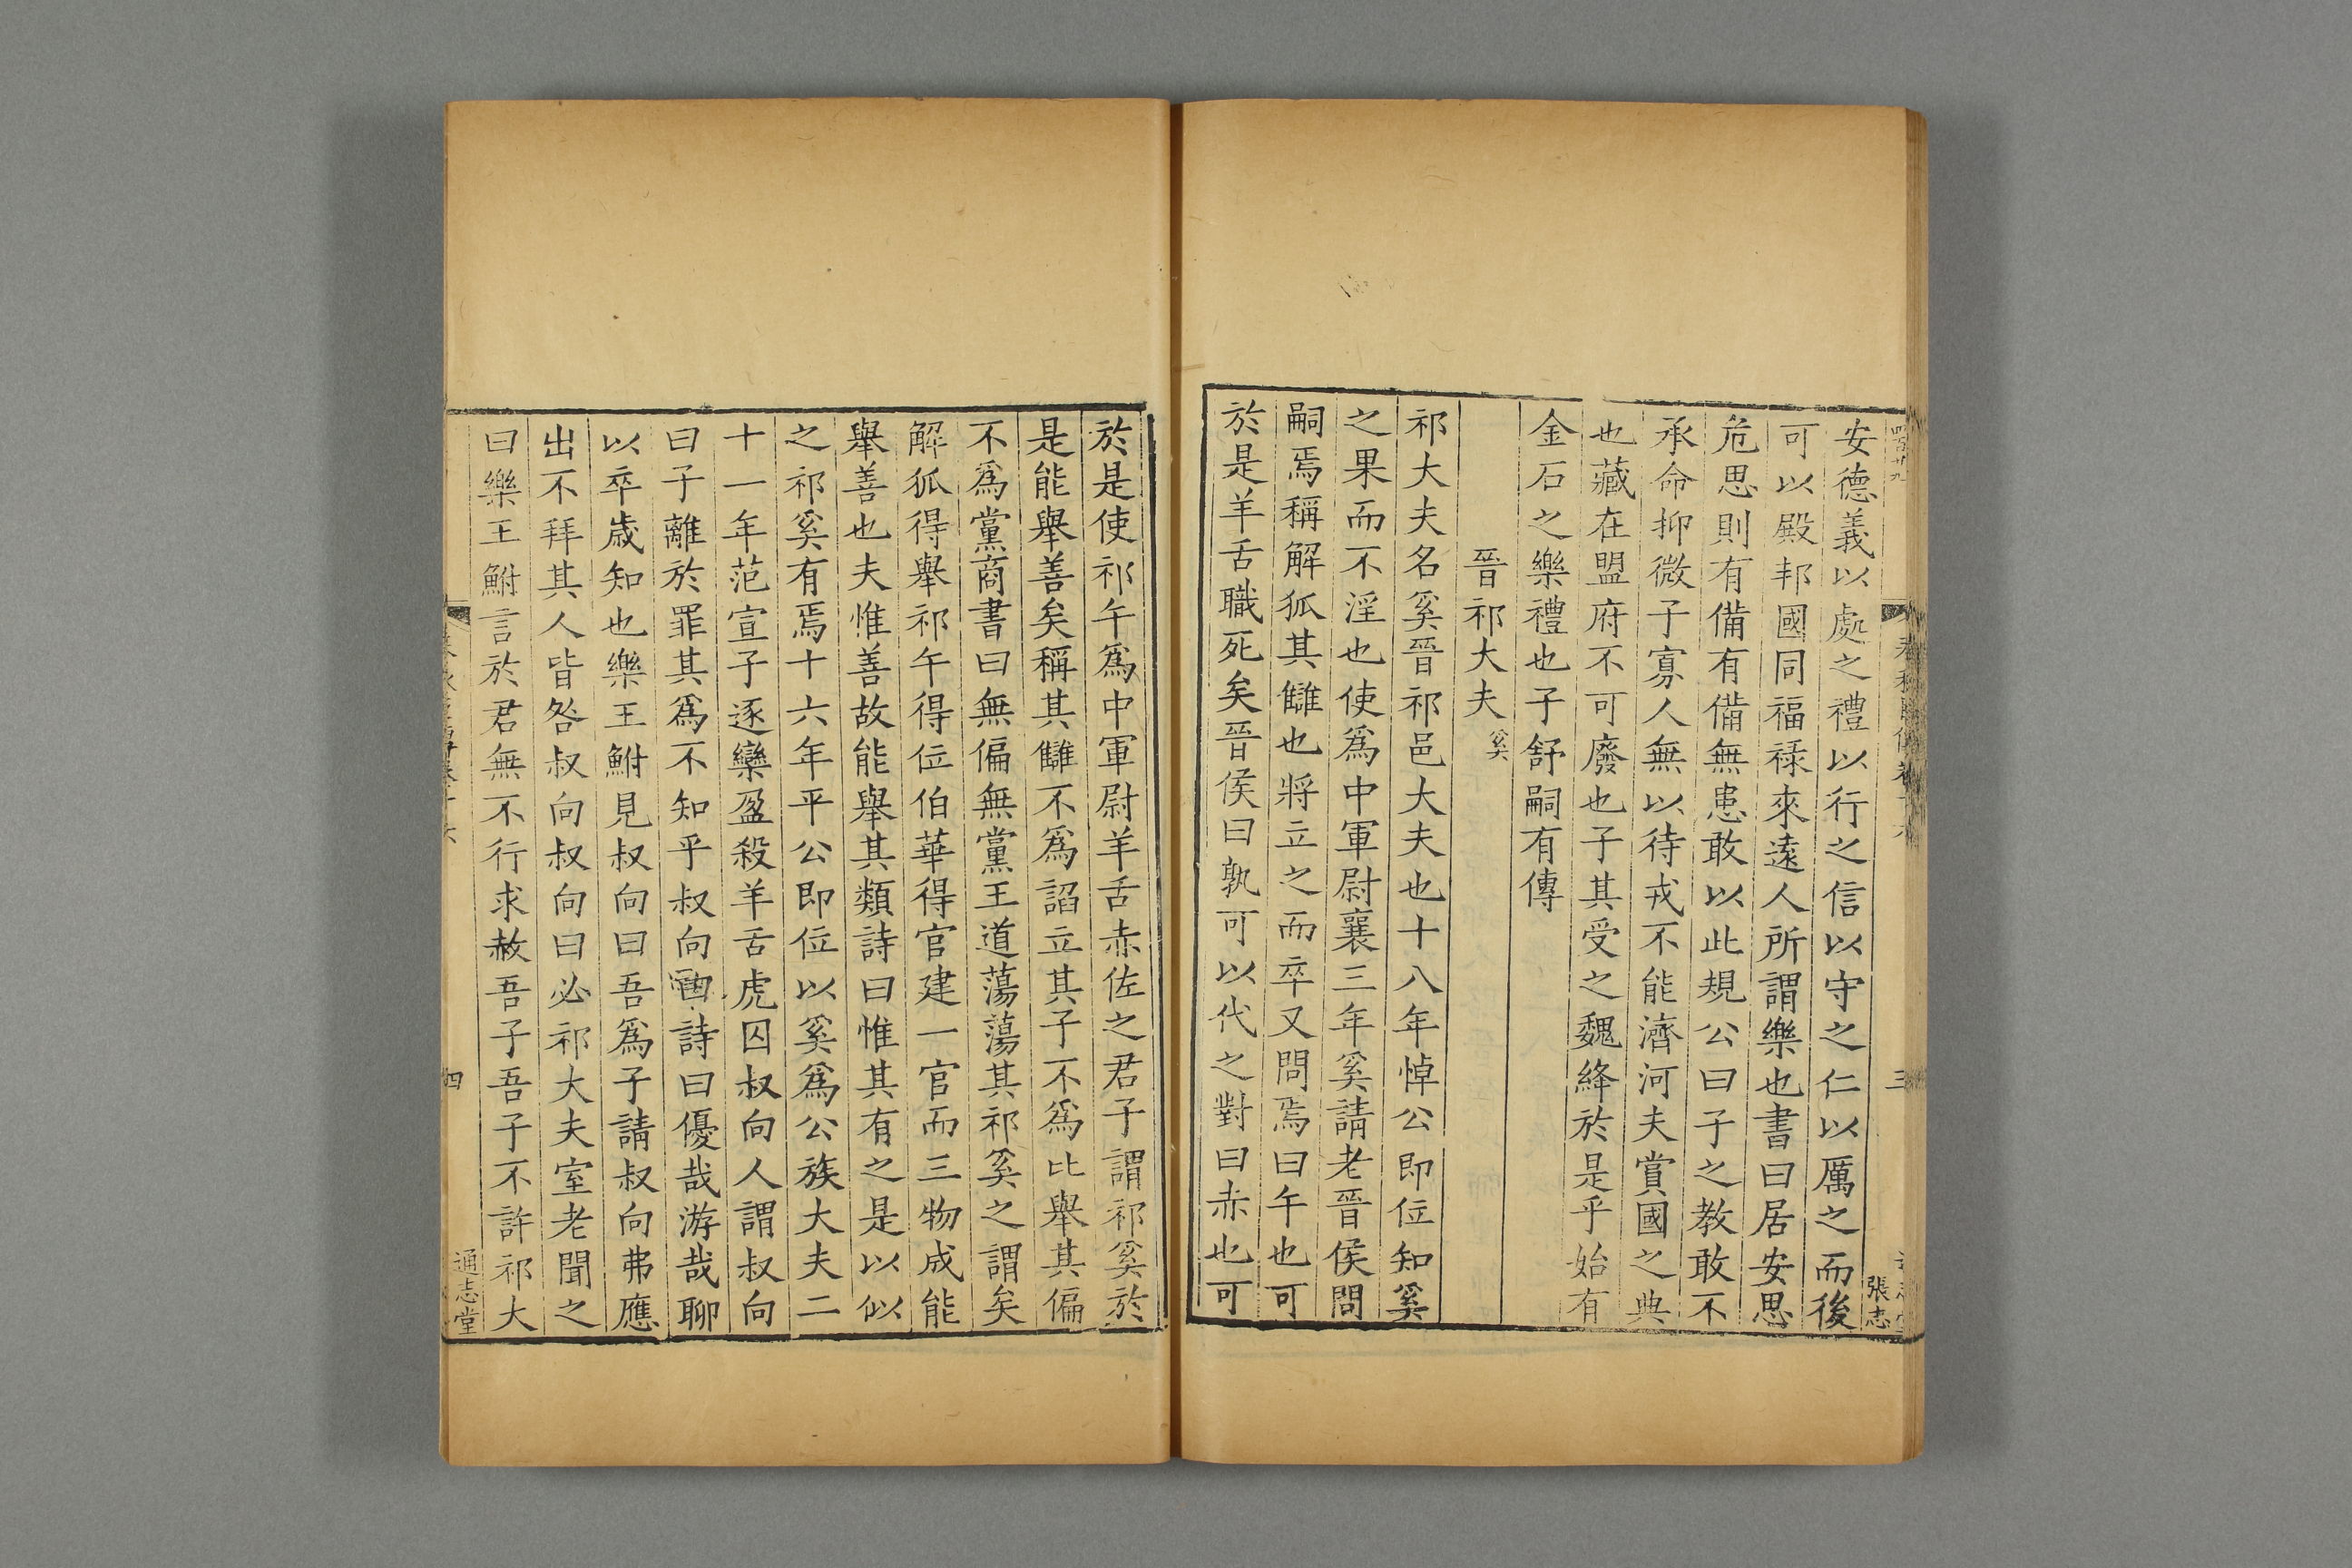 安德義以處之禮以行之信以守之仁以厲之而後
可以殿邦國同福祿來遠人所謂樂也書曰居安思
危思則有備有備無患敢以此規公曰子之教敢不
承命抑微子寡人無以待戎不能濟河夫賞國之典
也藏在盟府不可廢也子其受之魏絳於是乎始有
金石之樂禮也子舒嗣有傳
晉祁大夫奚
祁大夫名奚晉祁邑大夫也十八年悼公即位知奚
之果而不淫也使爲中軍尉襄三年奚請老晉侯問
嗣焉稱解狐其讎也將立之而卒又問焉曰午也可
於是羊舌職死矣晉侯曰孰可以代之對曰赤也可
張志
三
於是使祁午爲中軍尉羊舌赤佐之君子謂祁奚於
是能舉善矣稱其讎不爲謟立其子不爲比舉其偏
不爲黨商書曰無偏無黨王道蕩蕩其祁奚之謂矣
解狐得舉祁午得位伯華得官建一官而三物成能
舉善也夫惟善故能舉其類詩曰惟其有之是以似
之祁奚有焉十六年平公即位以奚爲公族大夫二
十一年范宣子逐欒盈殺羊舌虎囚叔向人謂叔向
曰子離於罪其爲不知乎叔向曰詩曰優哉游哉聊
以卒歲知也樂王鮒見叔向曰吾爲子請叔向弗應
出不拜其人皆咎叔向叔向曰必祁大夫室老聞之
曰樂王鮒言於君無不行求赦吾子吾子不許祁大
四
通志堂